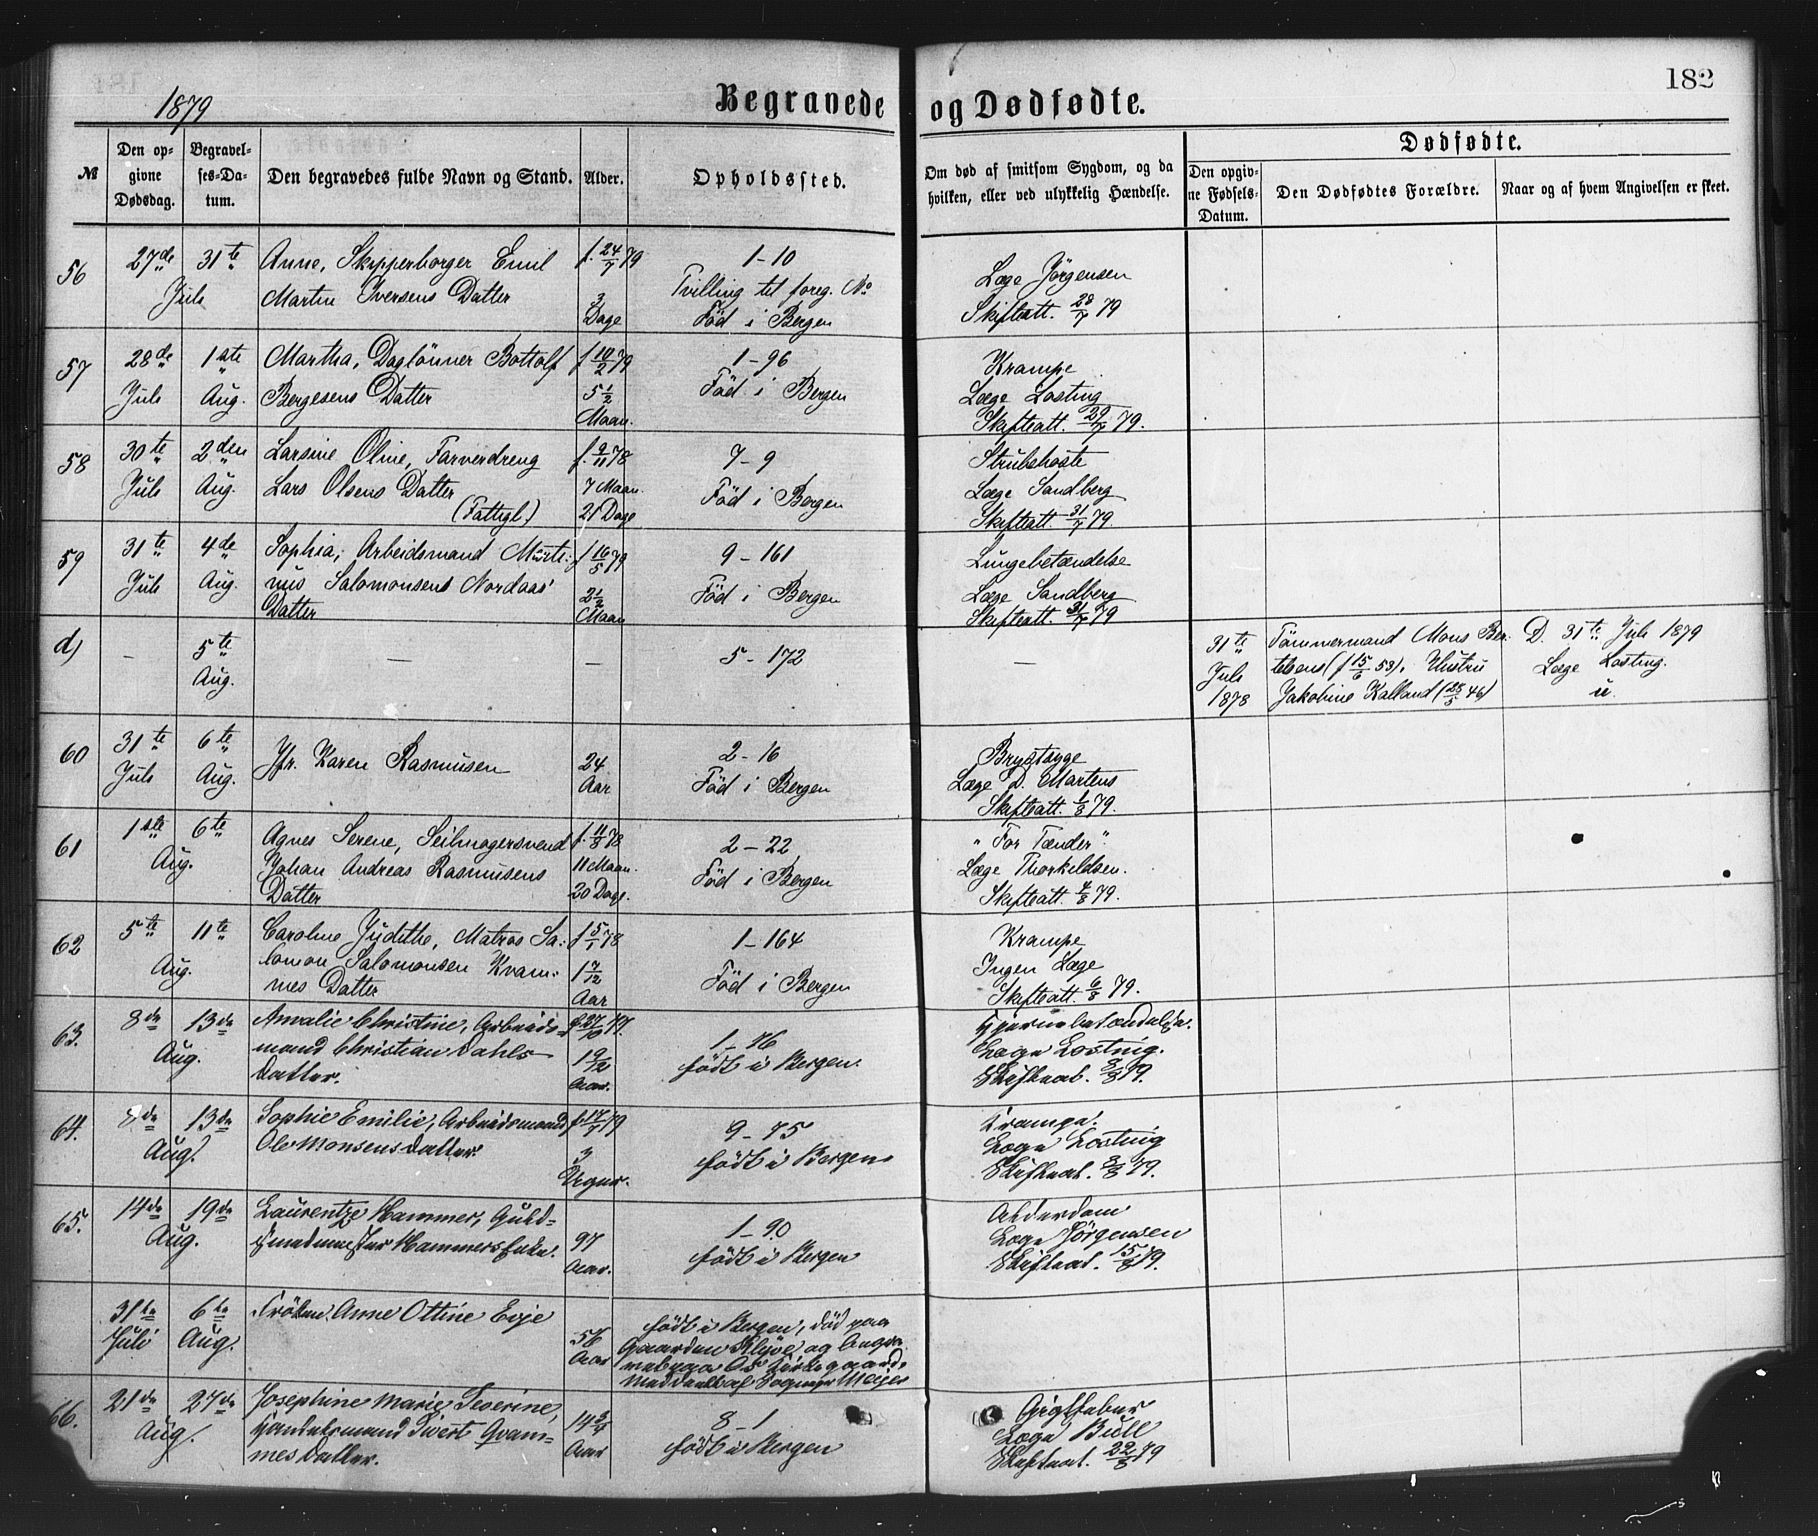 182
1879
Begravede og Dødfødte.
№
Den opgivne Dødsdag.
Begravelses-Datum.
Den begravedes fulde Navn og Stand.
Alder.
Opholdssted.
Om død af smitsom Sygdom, og da hvilken, eller ved ulykkelig Hændelse.
Dødfødte.
Den opgivne Fødsels-Datum.
Den Dødfødtes Forældre.
Naar og af hvem Angivelsen er skeet.
56
27de Juli
31te
Anne, Skipperborger Emil
Martin Iversens Datter
f. 24/7 79
3 Dage
1-10
Tvilling til foreg. No
Föd i Bergen
Læge Jørgensen
Skifteatt. 28/7 79
57
28de Juli
1ste Aug.
Martha, Daglönner Bottolf
Bergesens Datter
f 10/2 79
5 1/2 Maan.
1-96
Föd i Bergen
Krampe
Læge Losting
Skifteatt. 29/7 79.
58
30te Juli
2den Aug.
Larsine Oline, Farverdreng
Lars Olsens Datter
(Fattigl.)
f. 9/11 78
7 Maan.
21 Dage
7-9
Föd i Bergen
Strubehoste
Læge Sandberg
Skifteatt. 31/7 79.
59
31te Juli
4de Aug.
Sophia, Arbeidsmand Marti-
nus Salomonsens Nordaas'
Datter
f 16/5 79
2 1/2 Maan
9-161
Föd i Bergen
Lungebetændelse
Læge Sandberg
Skifteatt. 31/7 79
d)
-
5te Aug.
-
-
5-172
-
31te Juli 1878
Tömmermand Mons Ber-
telsens (f 15/6 53), Hustru
Jakobine Kalland (28/5 46)
D. 31te Juli 1879
Læge Losting.
u.
60
31te Juli
6te Aug.
Jfr. Karen Rasmusen
24 Aar
2-16
Föd i Bergen
Brystsyge
Læge D. Martens
Skifteatt. 1/8 79.
61
1ste Aug.
6te
Agnes Serene, Seilmagersvend
Johan Andreas Rasmusens
Datter
f. 11/8 78
11 Maan.
20 Dage.
2-22
Föd i Bergen
"For Tænder".
Læge Thorkildsen.
Skifteatt. 4/8 79.
62
5te Aug.
11te
Caroline Judithe, Matros Sa-
lomon Salomonsen Kvam-
nes Datter
f 5/1 78
1 7/12 Aar
1-164
Föd i Bergen
Krampe
Ingen Læge
Skifteatt. 6/8 79.
63.
8de Aug.
13de
Amalie Christine, Arbeids-
mand Christian Dahls
Datter.
f 27/10 77.
1 9/12 Aar.
1-76
født i Bergen.
Hjernebetændelse.
Læge Losting.
Skifteat. 8/8 79.
64.
8de Aug.
13de
Sophie Emilie, Arbeidsmand
Ole Monsens Datter.
f. 17/7 79
3 Uger.
9-75
født i Bergen
Krampe.
Læge Losting
Skifteat. 8/8 79.
65.
14de Aug.
19de
Laurentze Hammer, Guld-
smedmester Hammers Enke.
97 Aar.
1-90
født i Bergen
Alderdom
Læge Jørgensen
Skifteat. 15/8 79.
31te Juli
6te Aug.
Frøken Anne Ottine Evje
56 Aar
født i Bergen, død paa
Gaarden Kløve, og
Os Kirkegaard.
66.
21de Aug.
27de
Josephine Marie Severine,
Handelsmand Sivert Qvam-
mes Datter.
14 3/4 Aar
8-1
født i Bergen
Gigtfeber
Læge Bull
Skifteat. 22/8 79